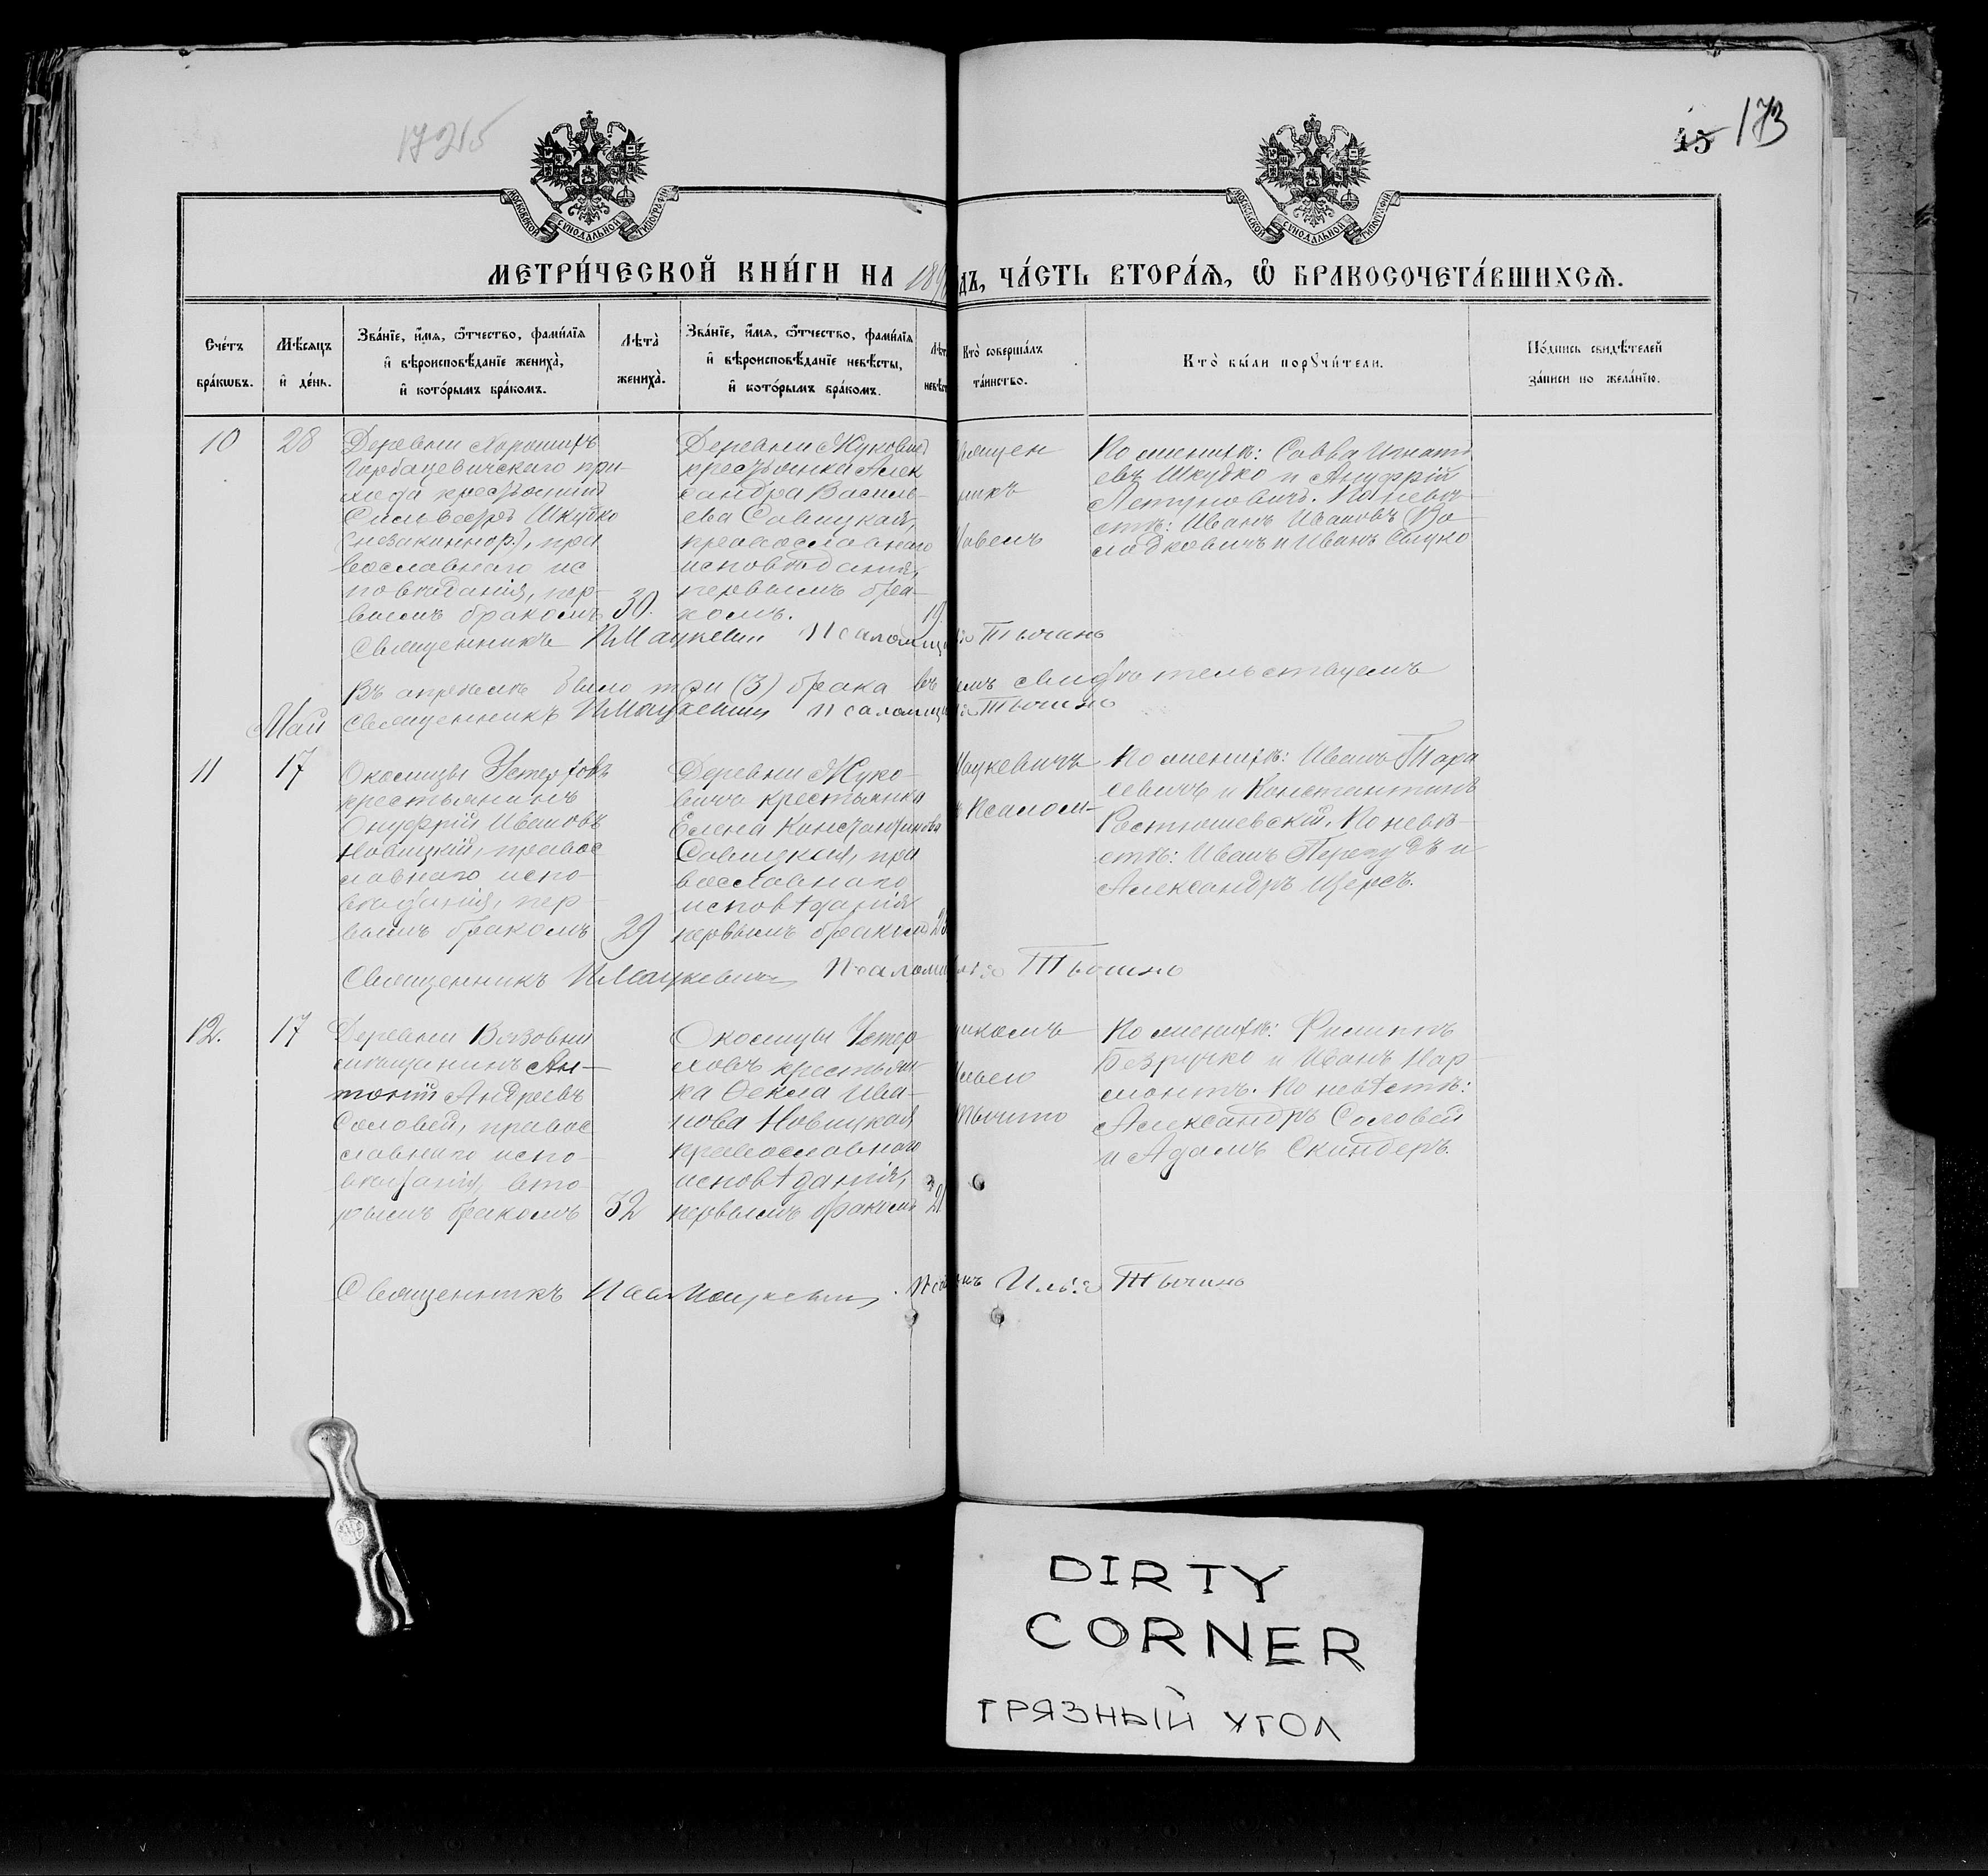 17215
45 173
МОСКОВСКОЙ СѴНОДАЛЬНОЙ ТИПОГРАФІИ
МОСКОВСКОЙ СѴНОДАЛЬНОЙ ТИПОГРАФІИ
МЕТРИ́ЧЕСКОЙ КНИ́ГИ НА 189 ДЪ, ЧА́СТЬ ВТОРА́Я, Ѡ҆ БРАКОСОЧЕТА́ВШИХСЯ.
Сче́тъ
бра́кωвъ.
Мѣ́сяцъ
и҆ де́нь.
Зва́нїе, и҆́мя, ѻ҆́тчество, фами́лїя
и҆ вѣроисповѣ́данїе жениха̀,
и҆ кото́рымъ бра́комъ.
Лѣта̀
жениха̀.
Зва́нїе, и҆́мя, ѻ҆́тчество, фами́лїя
и҆ вѣроисповѣ́данїе невѣ́сты,
и҆ кото́рымъ бра́комъ.
Лѣт
невѣст
Кто̀ соверша́лъ
та́инство.
Кто̀ бы́ли порꙋчи́тели.
По́дпись свидѣ́телей
за́писи по жела́нїю.
10
28
Деревни Хорошихъ
Горбацевичскаго при-
хода крестьянинъ
Сильвестръ Шкудко
(незаконнор.), пра
вославнаго ис
повѣданія, пер-
вымъ бракомъ
30.
Деревни Жуковичъ
крестьянка Алек
сандра Василь-
ева Савицкая,
православнаго
исповѣданія,
первымъ бра-
комъ.
19.
вящен
никъ
Павелъ
По женихѣ: Савва Игнать
евъ Шкудко и Ануфрій
Летунович. По невѣ-
стѣ: Иванъ Ивановъ Во
лодкович и Иванъ
Священникъ П Мацкевич Псаломщ Тычино
Въ апрелѣ было три (3) брака въ емъ свидѣтельствуемъ
Священникъ П Мацкевич Псаломщ Тычино
Май
11
17
Околицы
крестьянинъ
Онуфрій Ивановъ
Новицкій, правос
славнаго испо-
вѣданія, пер-
вымъ бракомъ
29
Деревни Жуко-
вичъ крестьянка
Елена Константинова
Савицкая, пра
вославнаго
исповѣданія
первымъ бракомъ
Мацкевичъ
Псалом-
По женихѣ: Иванъ Тара
севичъ и Константинъ
Ростишевскій. По невѣ-
стѣ: Иванъ Перегудъ и
Александръ Церсъ.
Священникъ П Мацкевич Псалом Тычино
12.
17
Деревни Вязовни
мѣщанинъ Ан-
тоній Андреевъ
Соловей, правос
славнаго испо-
вѣданія, вто
рымъ бракомъ
32
Околицы
крестьян-
ка Ѳекла Ива-
нова Новицкая
православнаго
исповѣданія,
первымъ бракомъ
21
щикомъ
Ильею
Тычино
По женихѣ: Филиппъ
Безручко и Иванъ Нар
монтъ. По невѣстѣ:
Александръ Соловей
и Адамъ Скиндеръ.
Священникъ Пав Мацкевич Пса Илья Тычино
DIRTY
CORNER
ГРЯЗНЫЙ УГОЛ